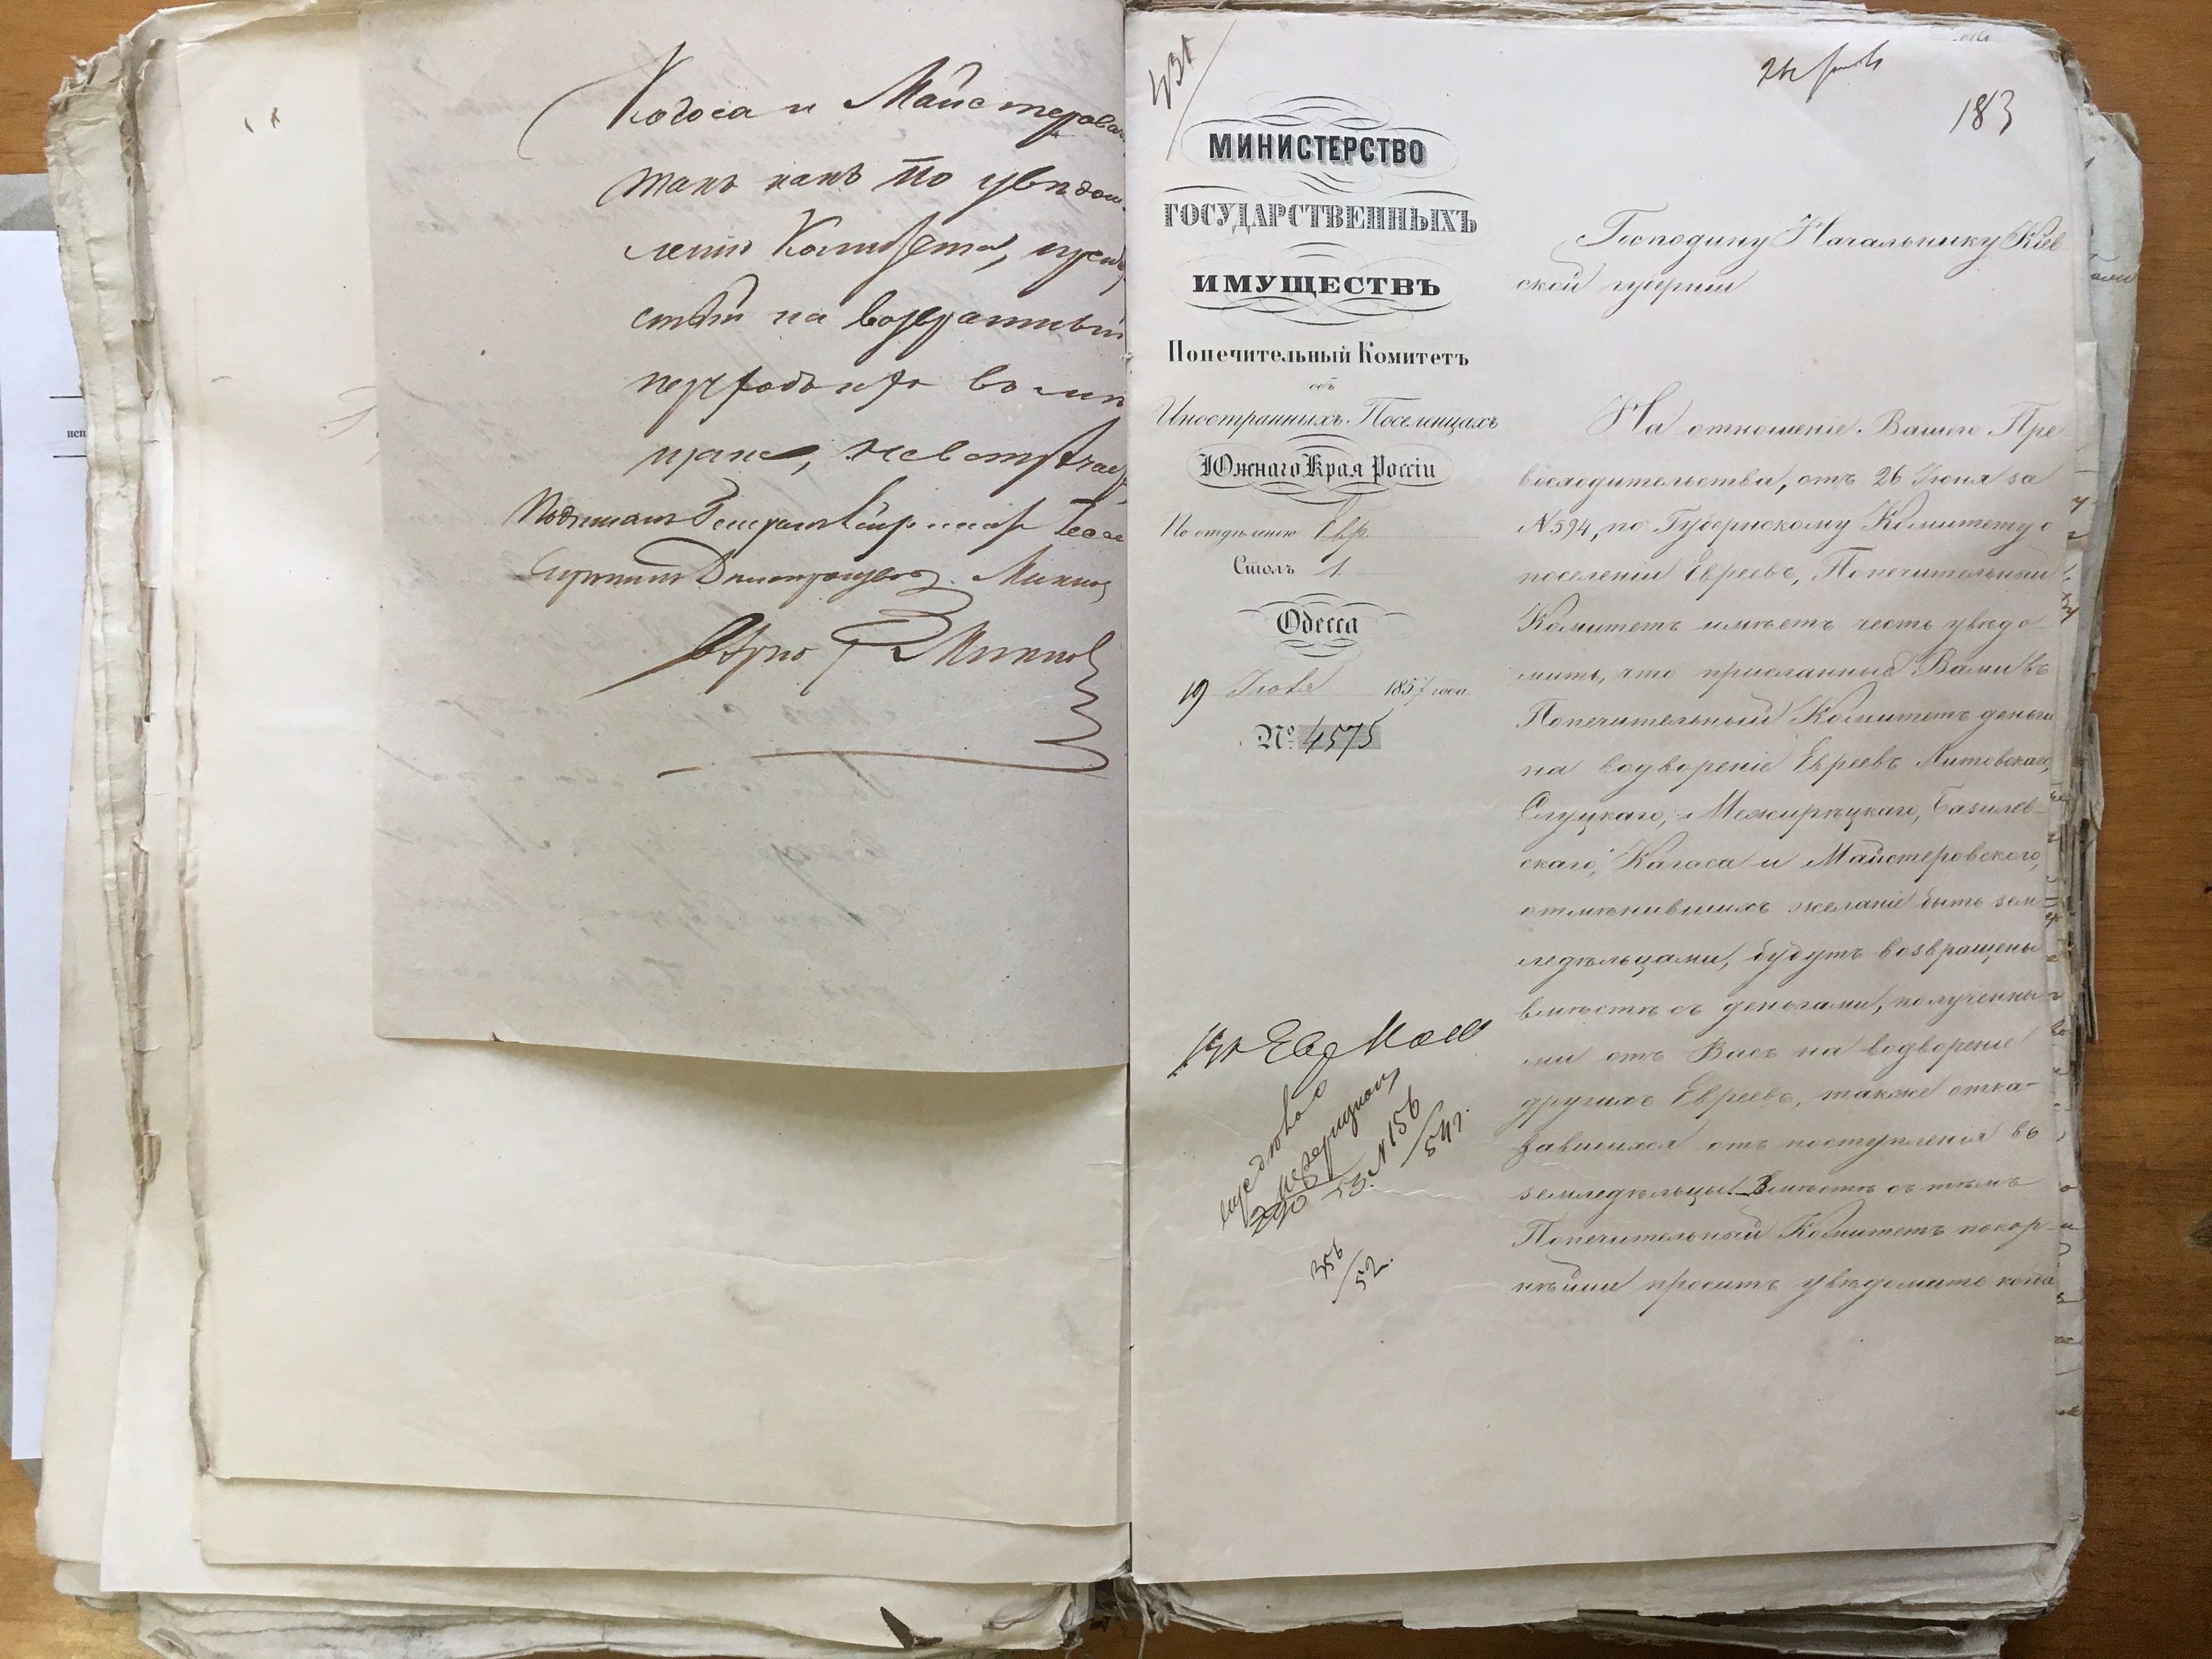 Кагоса и Майстеровск
такъ какъ по увѣдом-
ленію Комитета, препят
ствій на возвратный
переходъ ихъ въ мѣ
щане, не встрѣчает
Подписалъ Генералъ
Скрѣпилъ Дѣлопроизвод.
Вѣрно
131
183
МИНИСТЕРСТВО
ГОСУДАРСТВЕННЫХЪ
ИМУЩЕСТВЪ
Попечительный Комитетъ
объ
Иностранныхъ Поселенцахъ
Южнаго Края Россіи
По отдѣленію Евр.
Столъ 1.
Одесса
19 Іюля 1857 года.
№ 4575
Господину Начальнику Кіев
ской губерніи
На отношеніе Вашего Пре
восходительства, отъ 26 Іюня за
№ 594, по Губернскому Комитету о
поселеніи Евреевъ, Попечительный
Комитетъ имѣетъ честь увѣдо-
мить, что присланныя Вами въ
Попечительный Комитетъ деньги
на водвореніе Евреевъ Литовскаго,
Слуцкаго, Межирѣцкаго, Базилев-
скаго, Кагаса и Майстеровского,
отмѣнившихъ желаніе быть зем
ледѣльцами, будутъ возвращены
вмѣстѣ съ деньгами, полученны
ми отъ Васъ на водвореніе
другихъ Евреевъ, также отка-
завшихся отъ поступленія въ
земледѣльцы. Вмѣстѣ съ тѣмъ
Попечительный Комитетъ покор-
нѣйше проситъ увѣдомить кога
290 53. № 156
54 г.
356
52.